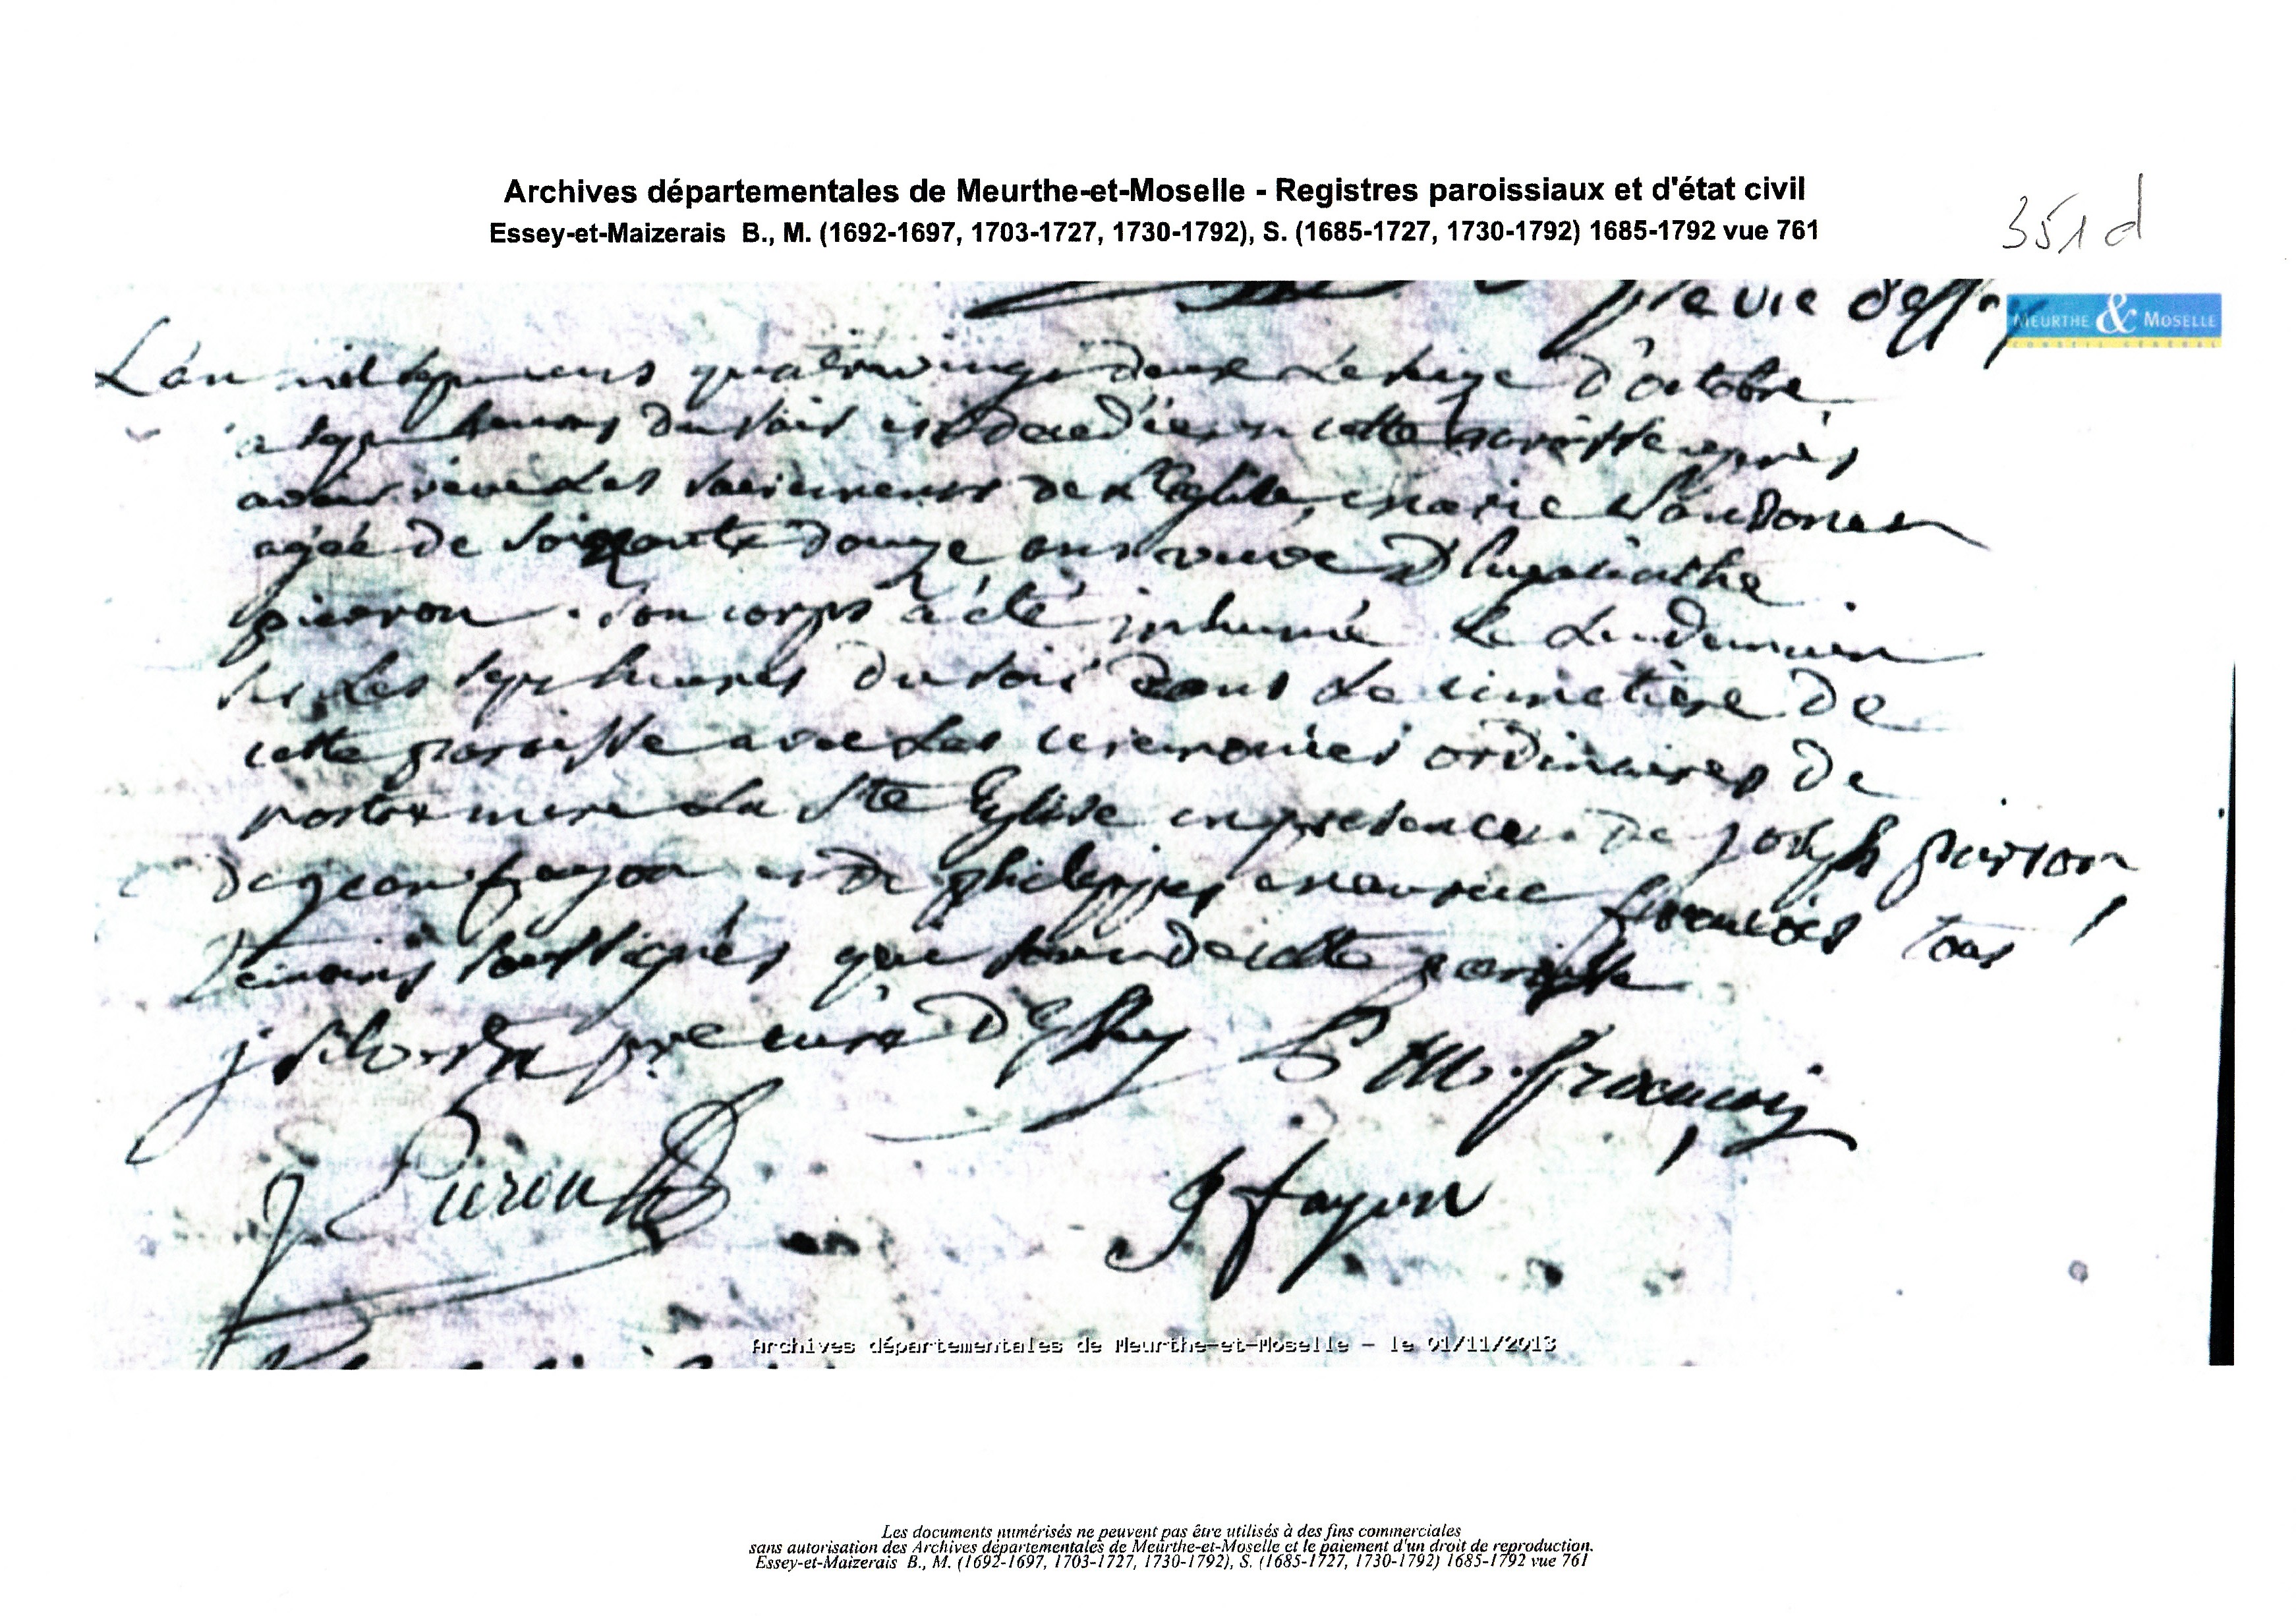 Archives départementales de Meurthe-et-Moselle - Registres paroissiaux et d'état civil
Essey-et-Maizerais B., M. (1692-1697, 1703-1727, 1730-1792), S. (1685-1727, 1730-1792) 1685-1792 vue 761
351 d
MEURTHE & MOSELLE
CONSEIL GENERAL
L'an mil sept cens quatrevingt deux le seize d'octobre
a sept heures du soir est decedée en cette paroisse après
avoir reçu les sacremens de l'Eglise, marie
agée de soixante douze ans veuve D'hyacinthe
pierron. Son corps a été inhumé le lendemain
sur les sept heures du soir dans le cimetière de
cette paroisse avec les ceremonies ordinaires de
nostre mere la Ste Eglise en presence de joseph pierron
de jean fayon et de philippe maurice francois tous
temoins soussignés qui sont de cette paroisse
j pre curé D'Essey P M. francois
J Pieron J fayon
Archives départementales de Meurthe-et-Moselle - le 01/11/2013
Les documents numérisés ne peuvent pas être utilisés à des fins commerciales
sans autorisation des Archives départementales de Meurthe-et-Moselle et le paiement d'un droit de reproduction.
Essey-et-Maizerais B., M. (1692-1697, 1703-1727, 1730-1792), S. (1685-1727, 1730-1792) 1685-1792 vue 761